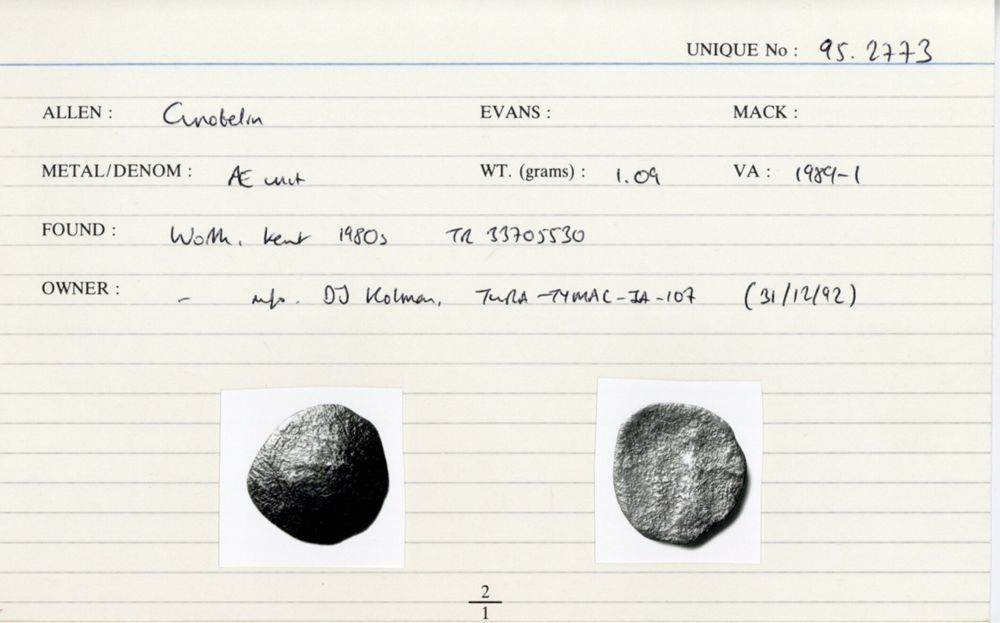 UNIQUE No : 95. 2773
ALLEN : Cunobelin EVANS : MACK :
METAL/DENOM : Æ unit WT. (grams) : 1.09 VA : 1989-1
FOUND : Worth, Kent 1980s TR 33705530
OWNER : - info. DJ Holman, -IA-107 (31/12/92)
2
1